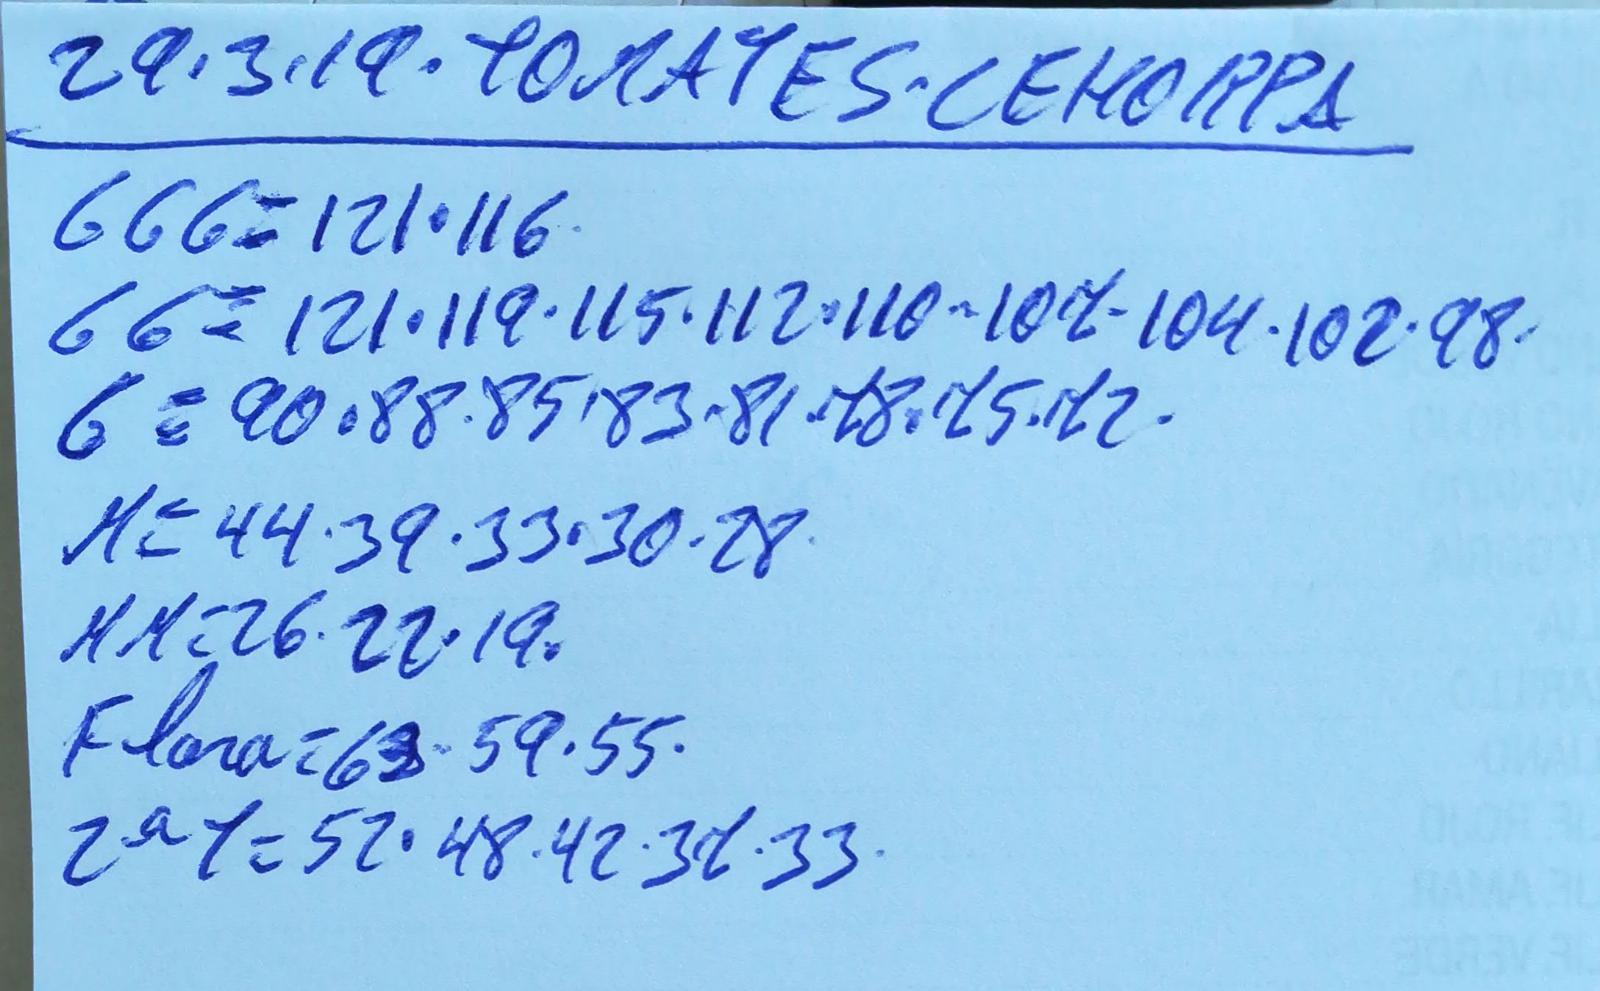 29.3.19. TOMATES-CEHORPA
GGG=121.116.
GG=121.119.115.112.110-107-104.102.98.
G=90.88.85.83.81.78.75.72.
M=44.39.33.30.28.
MM=26.22.19.
Flora=63.59.55.
2ªT=52.48.42.37.33.